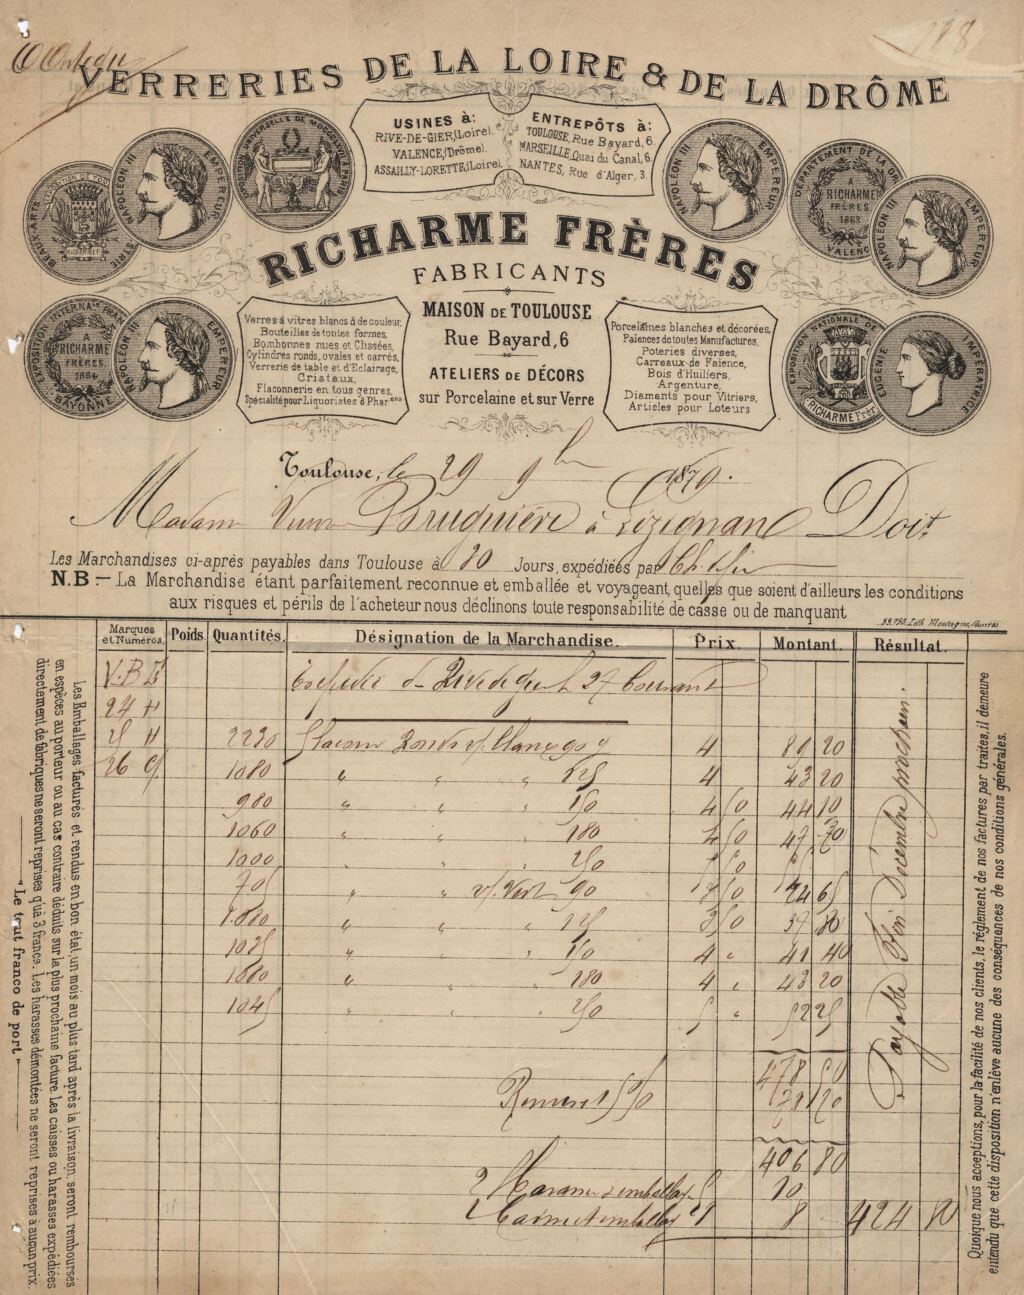 VERRERIES DE LA LOIRE & DE LA DRÔME
USINES à:
RIVE-DE-GIER,(Loire).
VALENCE,(Drôme).
ASSAILLY-LORETTE,(Loire).
ENTREPÔTS à:
TOULOUSE, Rue Bayard, 6.
MARSEILLE, Quai du Canal, 6.
NANTES, Rue d'Alger, 3.
NAPOLÉON III EMPEREUR
NAPOLÉON III EMPEREUR
DÉPARTEMENT DE LA
A
RICHARME
FRÈRES
1863
VALENC
NAPOLÉON III EMPEREUR
RICHARME FRÈRES
FABRICANTS
EXPOSITION INTERNA
A
RICHARME
FRÈRES
1864
BAYONNE
NAPOLÉON III EMPEREUR
Verres à vitres blancs & de couleur,
Bouteilles de toutes formes,
Bombonnes nues et Clissées,
Cylindres ronds, ovales et carrés,
Verrerie de table et d'Eclairage,
Cristaux,
Flaconnerie en tous genres,
Spécialité pour Liquoristes & Phar ens
MAISON DE TOULOUSE
Rue Bayard, 6
ATELIERS DE DÉCORS
sur Porcelaine et sur Verre
Porcelaines blanches et décorées,
Faïences de toutes Manufactures,
Poteries diverses,
Carreaux de Faïence,
Bois d'Huiliers,
Argenture,
Diamants pour Vitriers,
Articles pour Loteurs
EXPOSITION NATIONALE DE
RICHARME Frèr
EUGÉNIE IMPÉRATRICE
Toulouse, le 29 9bre 1879.
Madame Veuve Bruguière à Lézignan Doit
Les Marchandises ci-après payables dans Toulouse à 30 Jours, expédiées par
N.B.- La Marchandise étant parfaitement reconnue et emballée et voyageant, quelles que soient d'ailleurs les conditions
aux risques et périls de l'acheteur nous déclinons toute responsabilité de casse ou de manquant
Marques et Numéros. Poids. Quantités. Désignation de la Marchandise. Prix. Montant. Résultat.
V.B.
Expédié de Rive de Gier le 27 Courant
27 H
25 H 2230 4 89 20
26 1080 " " " 125 4 43 20
980 " " " 150 4 50 44 10
1060 " " " 180 4 50 47 70
1000 " 250
705 " " v/. Vert 90 3 50 24 65
1080 " " " 125 3 50 37 80
1035 " " " 150 4 " 41 40
1080 " " " 180 4 " 43 20
1045 " " " 250 5 " 52 25
478 50
Remise 15%
406 80
2 emballage 5 10
2 emballage 8 424 80
Payable Fin Décembre prochain.
Les Emballages facturés et rendus en bon état, un mois au plus tard après la livraison, seront remboursés
en espèces au porteur ou au cas contraire déduits sur la plus prochaine facture. Les caisses ou harasses expédiées
directement de fabriques ne seront reprises qu'à 3 francs. Les harasses démontées ne seront reprises à aucun prix.
" Le tout franco de port "
Quoique nous acceptions, pour la facilité de nos clients, le réglement de nos factures par traites, il demeure
entendu que cette disposition n'enlève aucune des conséquences de nos conditions générales.